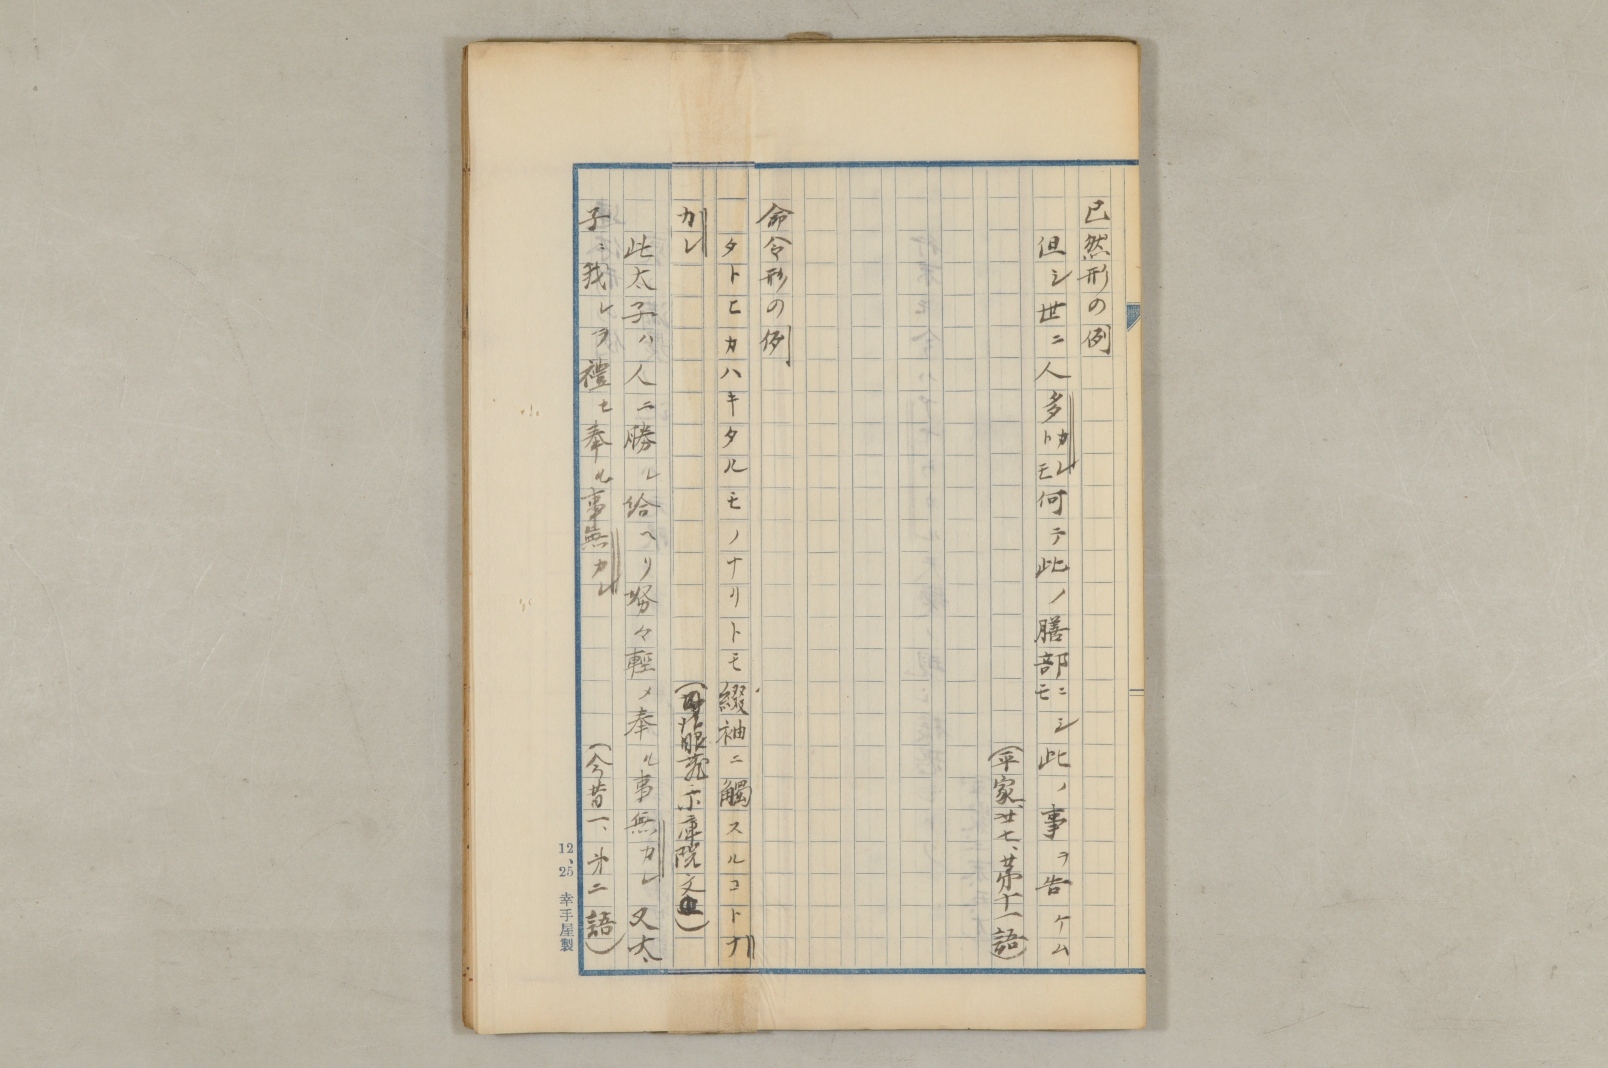 已然形の例
但シ世ニ人多カレトモ何テ此ノ膳部ニモシ此ノ事ヲ告ケム
(平家、廿七、第十一語)
命令形の例
タトヒカハキタルモノナリトモ綴袖ニ觸スルコトナ
カレ
庫院文
此太子ハ人ニ勝レ給ヘリ努々輕メ奉ル事無カレ又太
子ニ我レヲ禮セ奉ル事無カレ
(今昔一、第二語)
12、25 幸手屋製